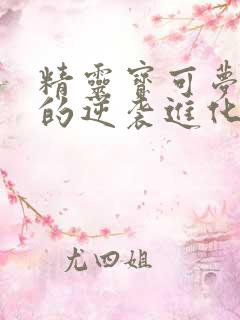 精靈寶可夢
的逆袭進化
尤四姐